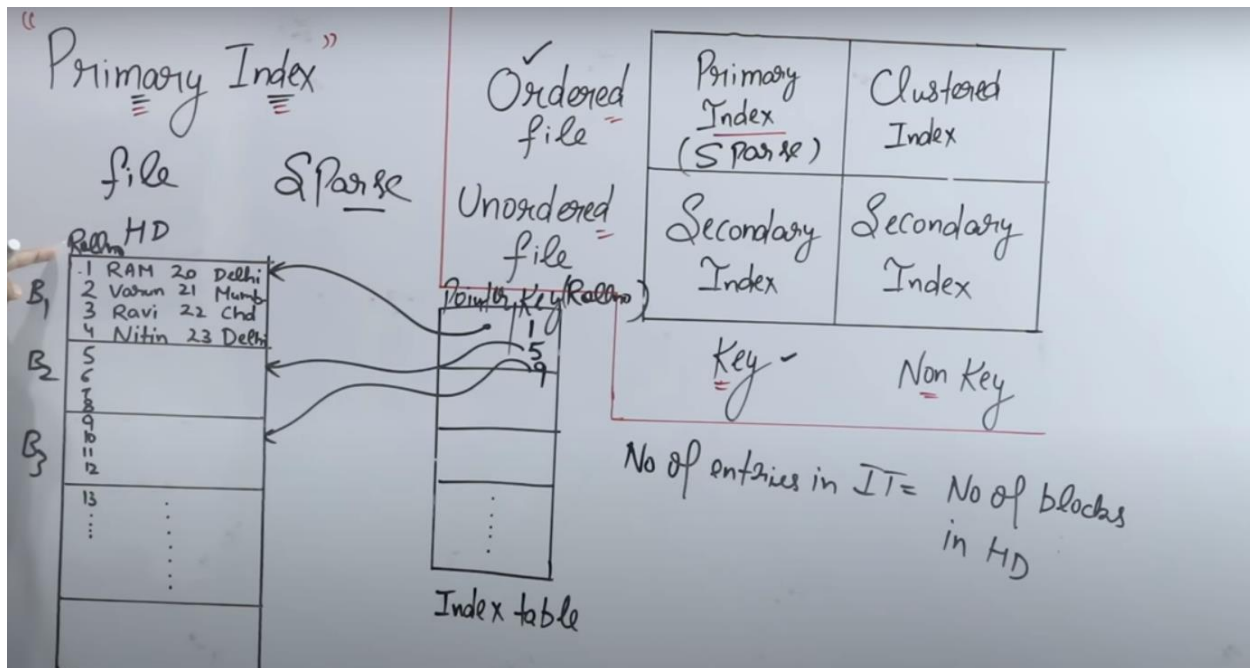 “Primary Index”
file SParse
HD
Rollno
B1
1 RAM 20 Delhi
2 Varun 21 Mumb
3 Ravi 22 Chd
4 Nitin 23 Delhi
B2
5
6
7
8
B3
9
10
11
12
13
Pointer Key(Rollno)
1
5
9
Index table
Ordered file
Unordered file
Primary Index (SParse)
Clustered Index
Secondary Index
Secondary Index
Key
Non Key
No of entries in IT = No of blocks
in HD